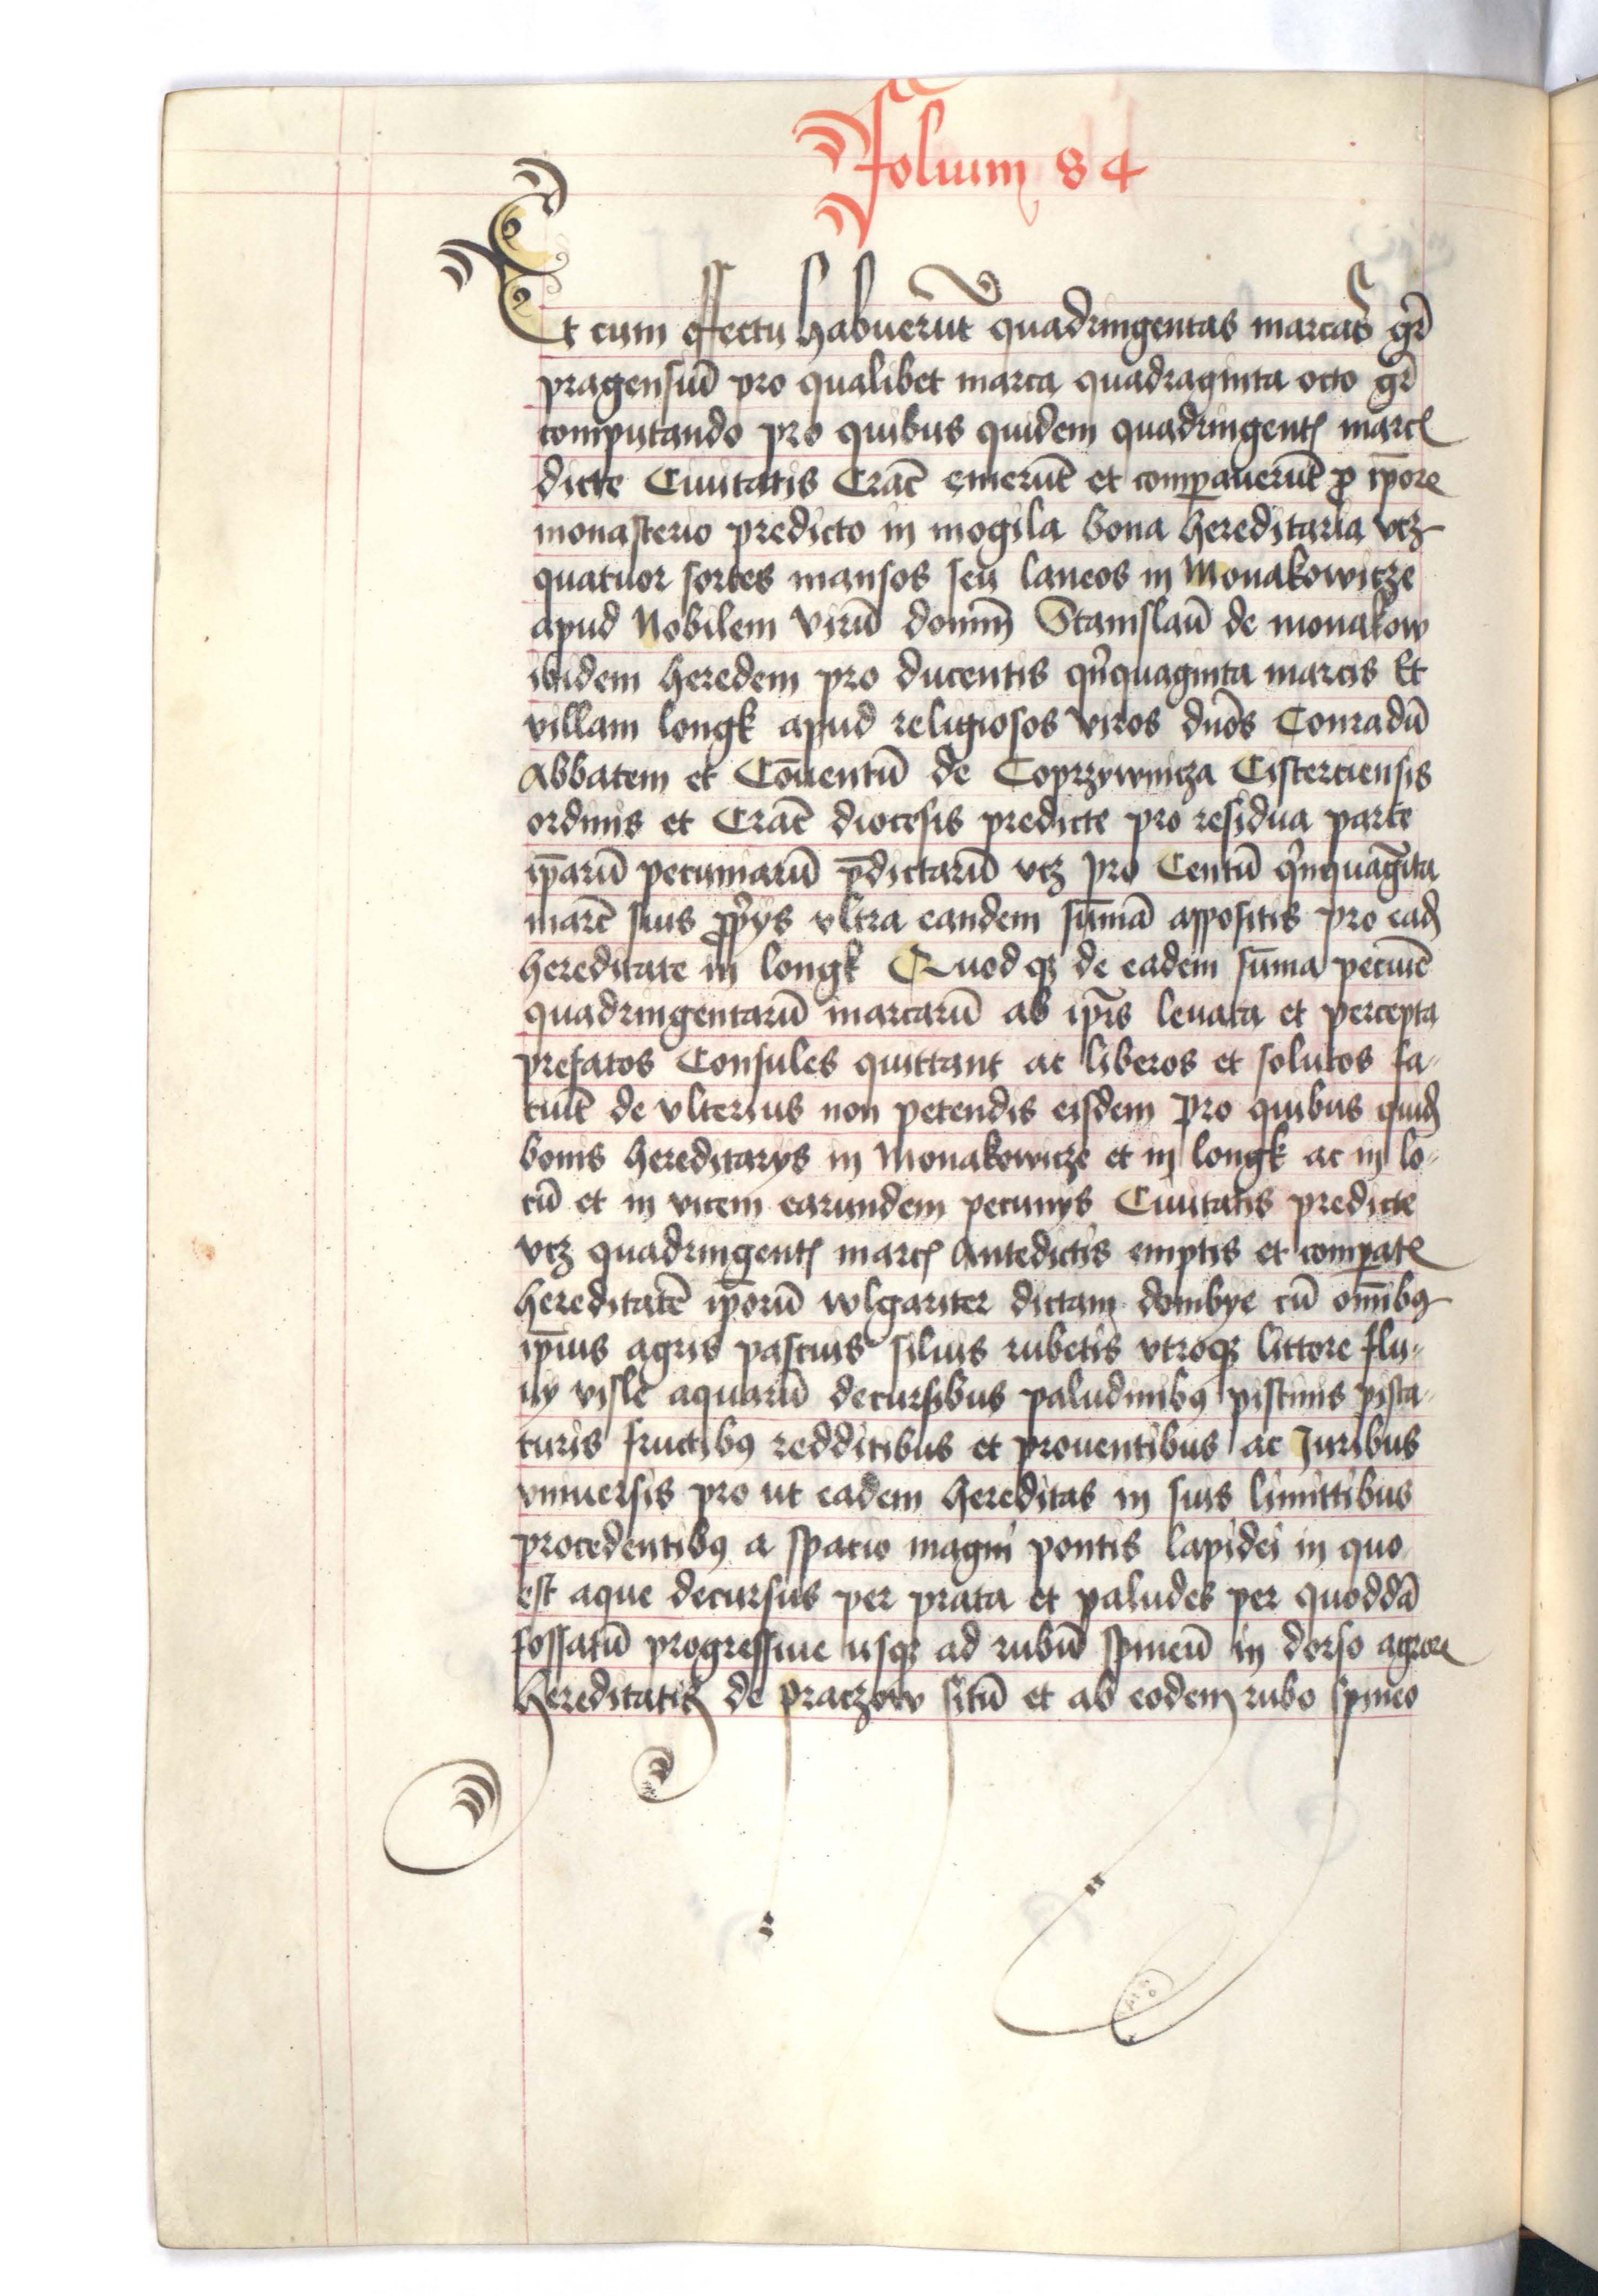 folium 84
Et cum effectu habuerūt quadringentas marcas gr̄
pragensiū pro qualibet marca quadraginta octo gr̄
computando pro quibus quidem quadringentꝭ marcꝭ
dicte Ciuitatis Crac̄ emerūt et compauerūt ꝓ ip̄ore
monasterio predicto in mogila bona hereditaria vcꝫ
quatuor sortes mansos seu laneos in Monakowicze
apud Nobilem virū domin̄ Stanislaū de monakow
ibidem heredem pro ducentis qͥnquaginta marcis Et
villam longk apud religiosos viros dnōs Conradū
Abbatem et Cōuentū de Coprzywnicza Cisterciensis
ordinis et Crac̄ diocesis predicte pro residua parte
ip̄arū pecuniarū p̄dictarū vcꝫ pro Centū qͥnquagīta
marc̄ suis ꝓpͥys vltra eandem sūmā appositis pro eadꝫ
hereditate in longk Quodqꝫ de eadem sūma pecuīe
quadringentarū marcarū ab ip̄is leuata et percepta
prefatos Consules quittant ac liberos et solutos fa-
ciūt de vlterius non petendis eisdem Pro quibus quidꝫ
bonis hereditarys in Monakowicze et in longk ac in lo-
cū et in vicem earundem pecunys Ciuitatis predicte
vcꝫ quadringentꝭ marcꝭ Antedictis emptis et compatꝭ
hereditatē ip̄orū wlgariter dictam dombye cū om̄ibꝰ
ip̄ius agris pascuis siluis rubetis vtroqꝫ littore flu-
uy visle aquarū decursibus paludinibꝰ piscinis pisca-
turis fructibꝰ redditibus et prouentibus ac Juribus
vniuersis pro ut eadem hereditas in suis limittibus
procedentibꝰ a spatio magni pontis lapidei in quo
est aque decursus per prata et paludes per quoddā
fossatū progressiue usqꝫ ad rubū spineū in dorso agrore
hereditatis de praczow sitū et ab eodem rubo spineo